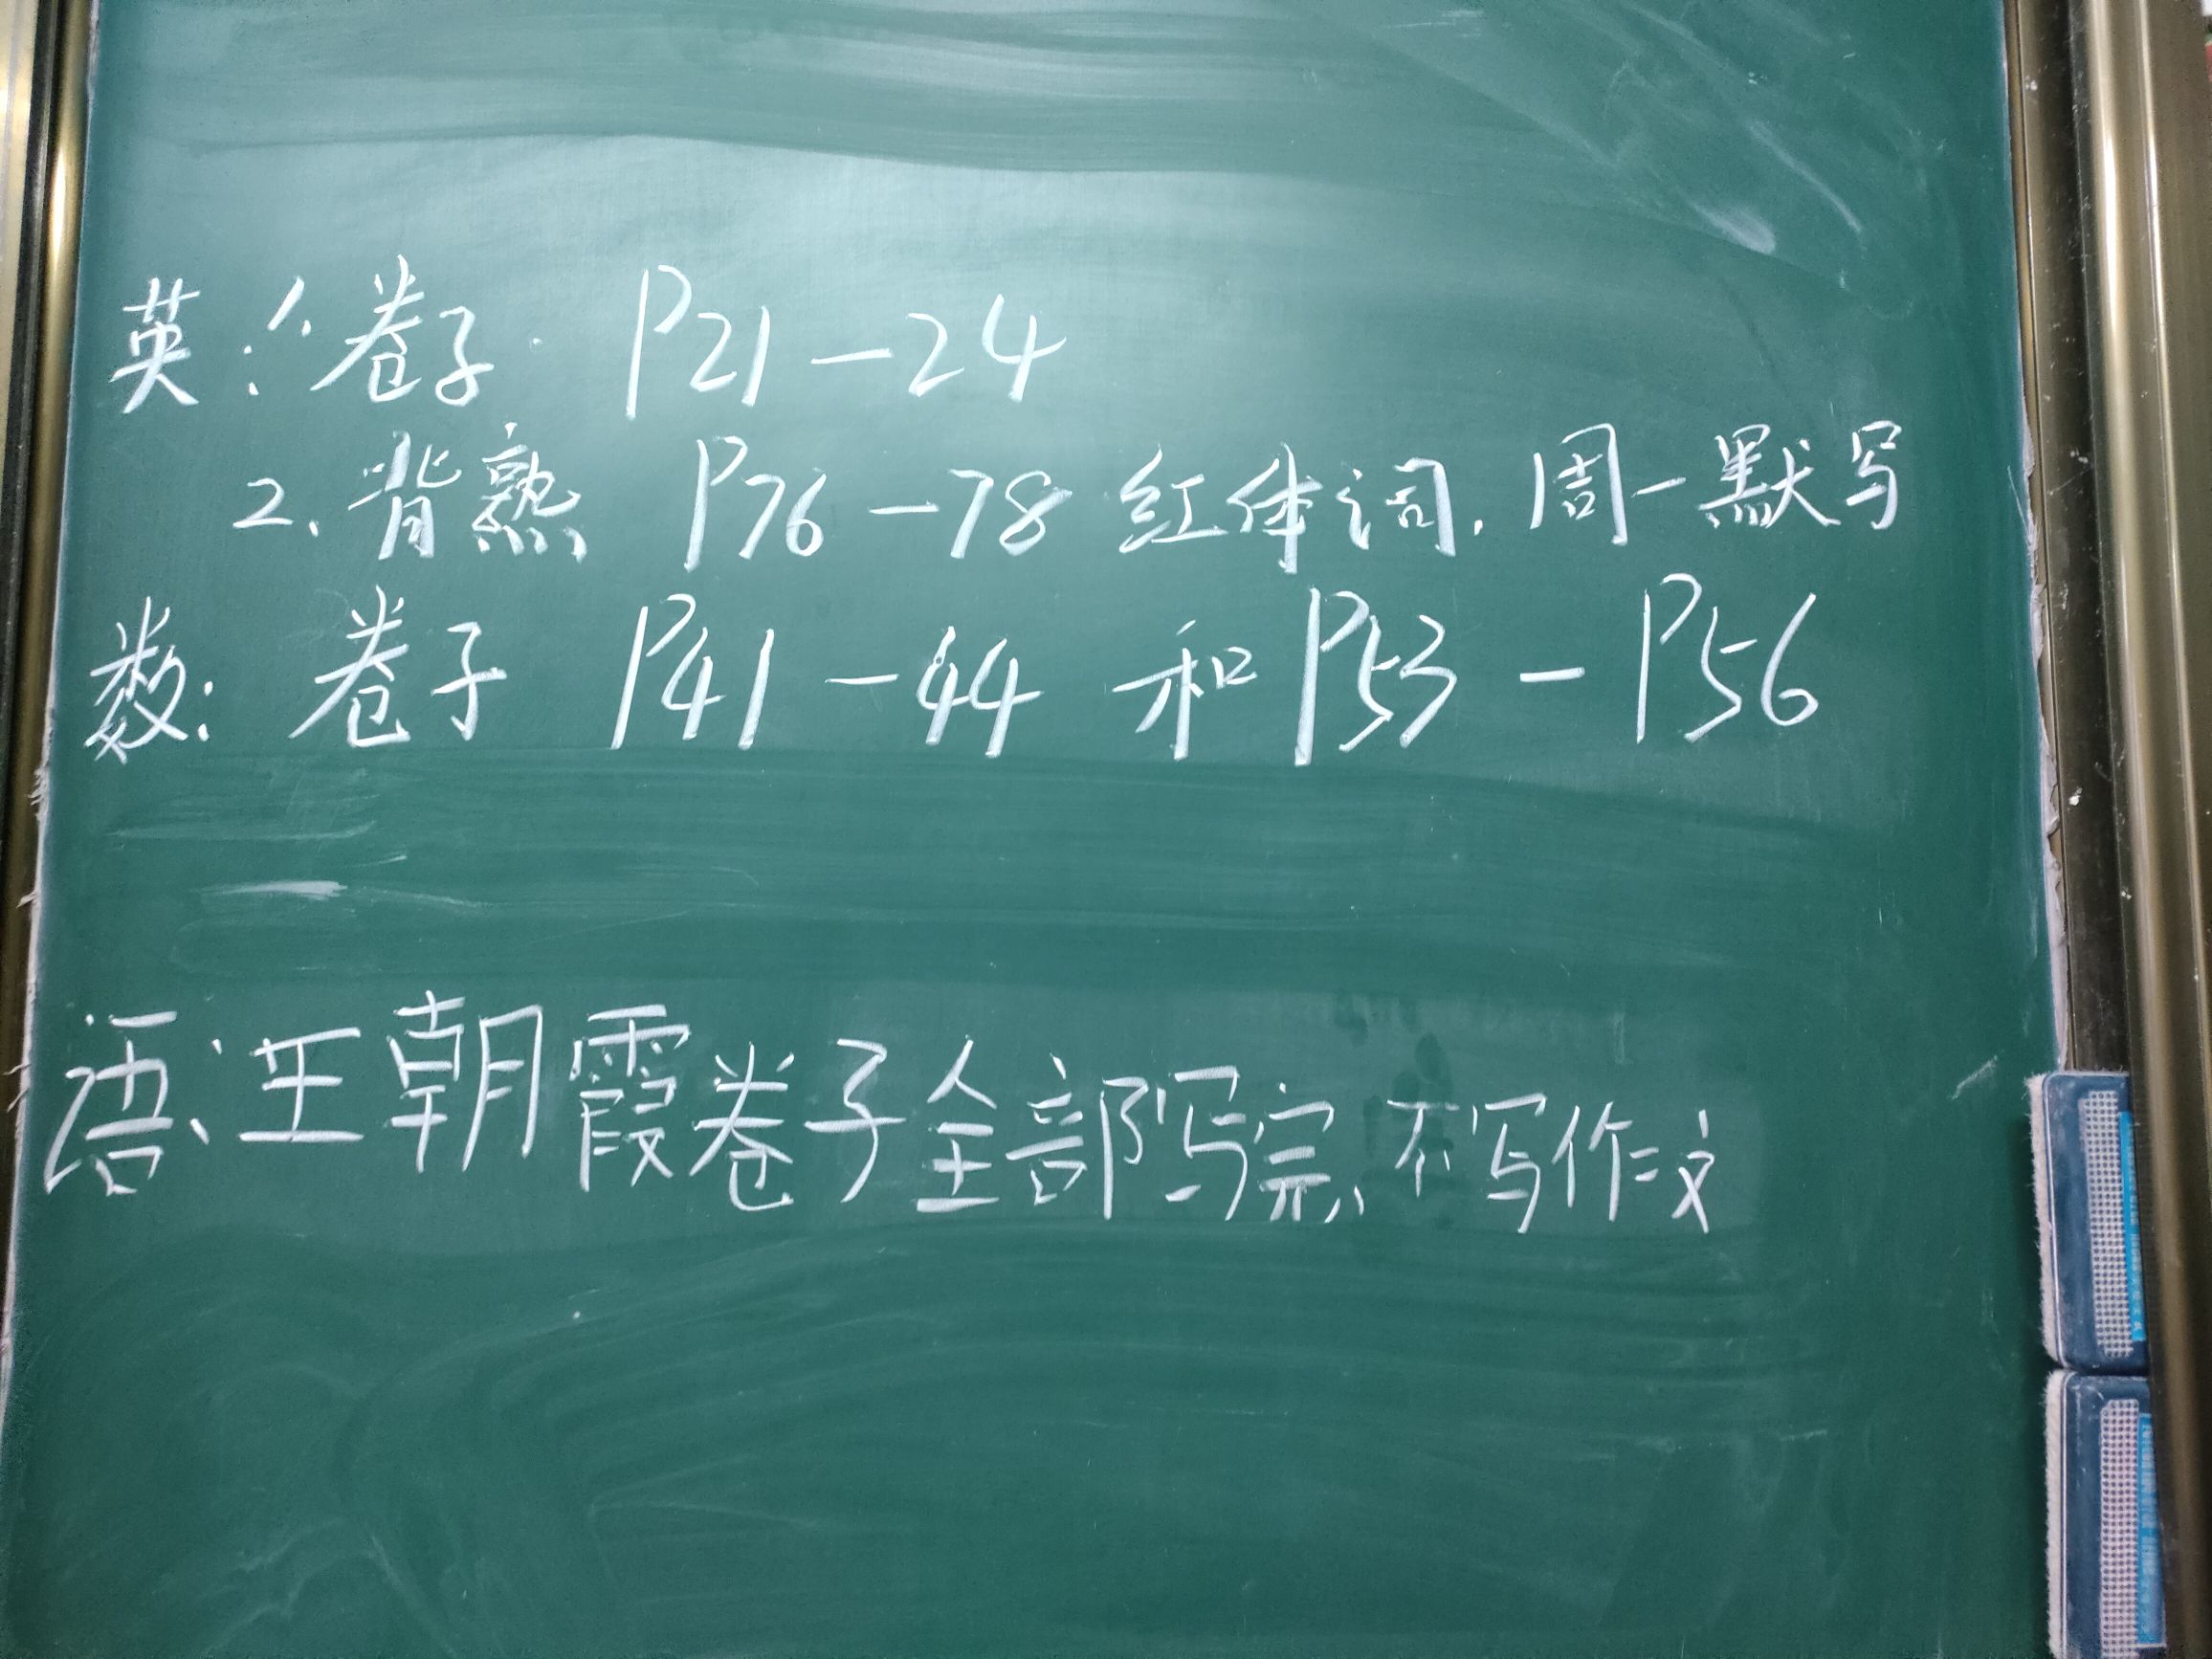 英：1、卷子 P21－24
2、背熟 P76－78 红体词，周一默写
数：卷子 P41－44 和 P53－P56
语：王朝霞卷子全部写完，不写作文